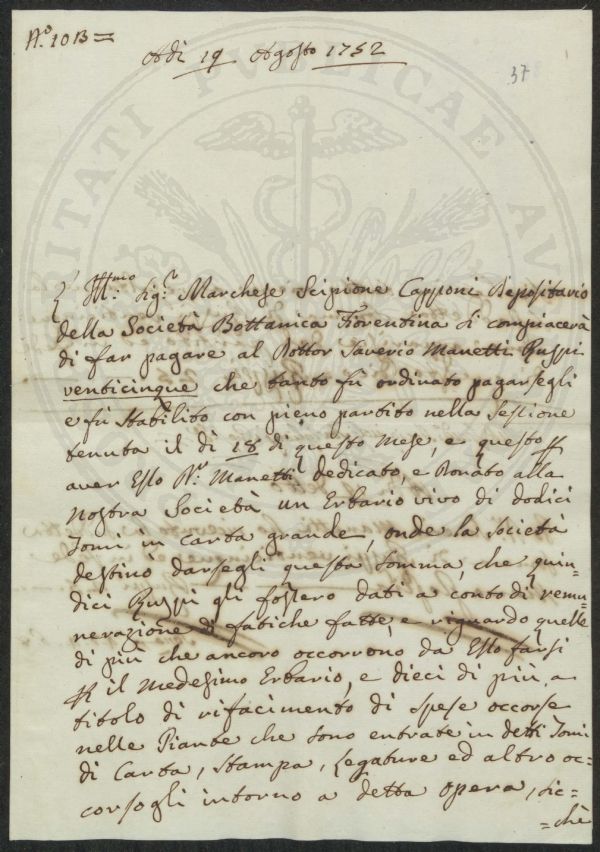 N.º 1013 =
Adì 19 Agosto 1752
37
L' Ill.mo Sig.r Marchese Scipione Capponi Depositario
della Società Bottanica Fiorentina si compiacerà
di far pagare al Dottor Saverio Manetti Ruspi
venticinque che tanto fù ordinato pagarsegli
e fù stabilito con pieno partito nella sessione
tenuta il dì 18 di questo mese, e questo
aver Esso D.r Manetti dedicato, e Donato alla
nostra Società un Erbario vivo di dodici
Tomi in carta grande, onde la società
destinò darsegli questa somma, che quin=
dici Ruspi gli fossero dati a conto di remu=
nerazione di fatiche fatte, e riguardo quelle
di più che ancora occorrono da Esso farsi
il medesimo Erbario, e dieci di più a
titolo di rifacimento di spese occorse
nelle Piante che sono entrate in detti Tomi
di Carta, Stampa, Legature ed altro oc=
corsogli intorno a detta opera, sic=
=chè
VERITATI PUBLICAE